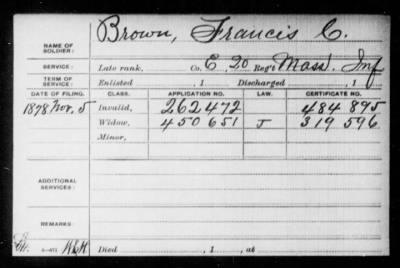 NAME OF SOLDIER: Brown, Francis C.
SERVICE: Late rank, Co. E, 20 Reg't Mass. Inf
TERM OF SERVICE: Enlisted , 1 Discharged , 1
DATE OF FILING. CLASS. APPLICATION NO. LAW. CERTIFICATE NO.
1878 Nov. 5 Invalid, 262 472 484 895
Widow, 450 651 J 319 596
Minor,
ADDITIONAL SERVICES:
REMARKS:
Died , 1 , at